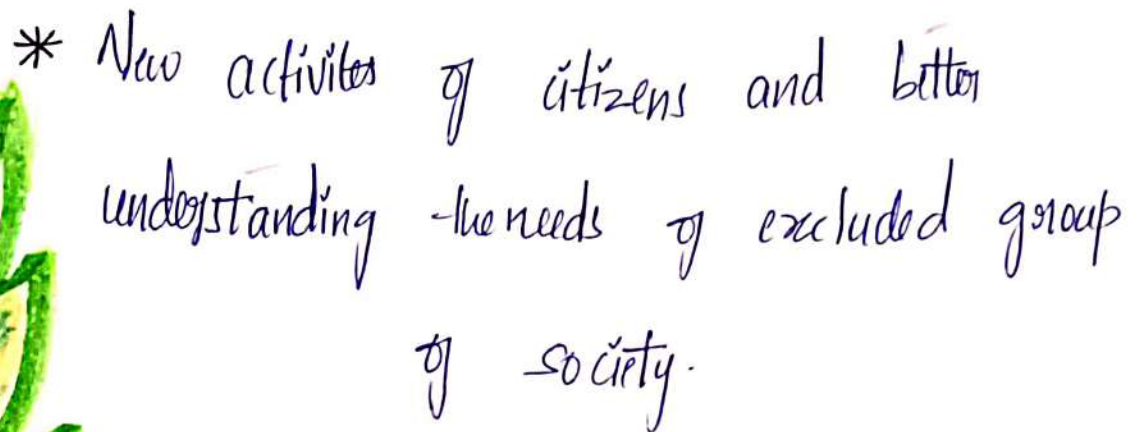 * New activites of citizens and better
understanding the needs of excluded group
of society.